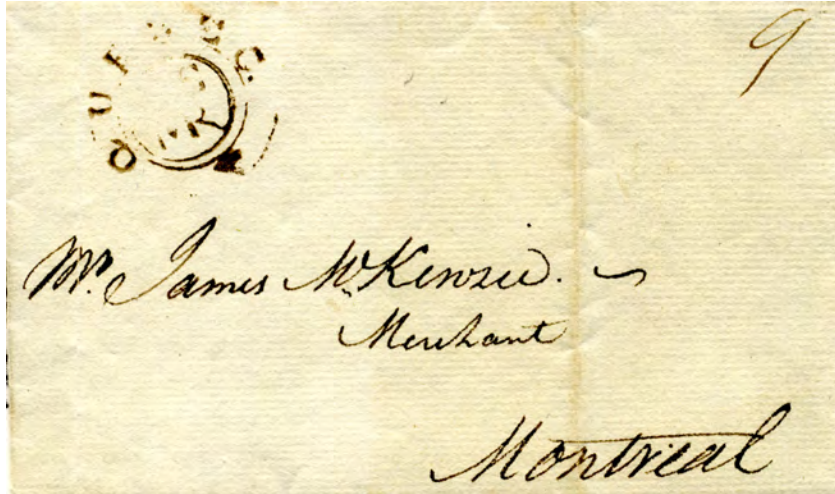 QUEBEC
9
Mr. James McKenzie.
Merchant
Montreal